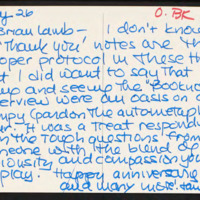 y 26
O. BK
Brian Lamb – I don't know
'Thank you' notes are th
oper protocol in these
t I did want to say that
and seeing the "Booknot
erview were an oasis on a
mpy (pardon the automotap
. It was a treat respondi
the tough questions from
meone with the blend of
iosity and compassion you
play. Happy anniversary
and many more!